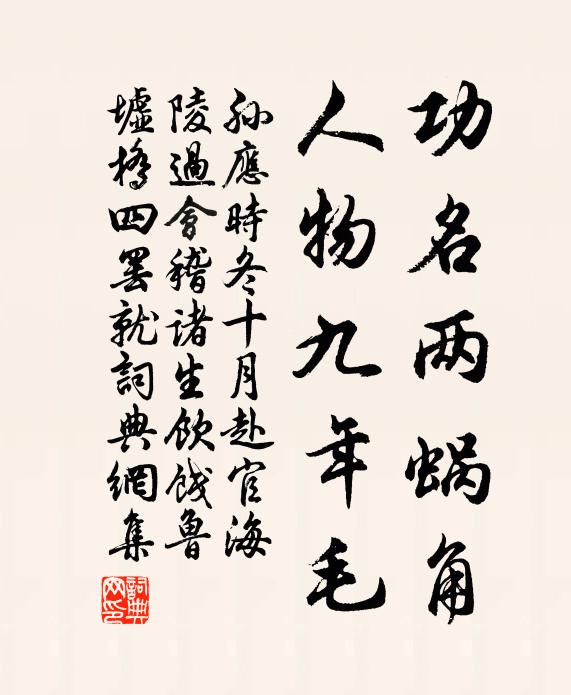 功名两蜗角
人物九年毛
孙應時冬十月赴官海
陵過會稽諸生飲餞魯
墟橋四罢就詞典網集
詞典网印